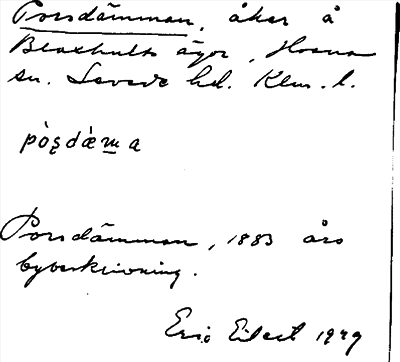 Porsdämman, åker å
Blaxhults ägor, Hossna
sn. Sevede hd. Klm. l.
pòʂdǽm̲a
Porsdämman, 1883 års
bybeskrivning.
Eric Eilert 1929